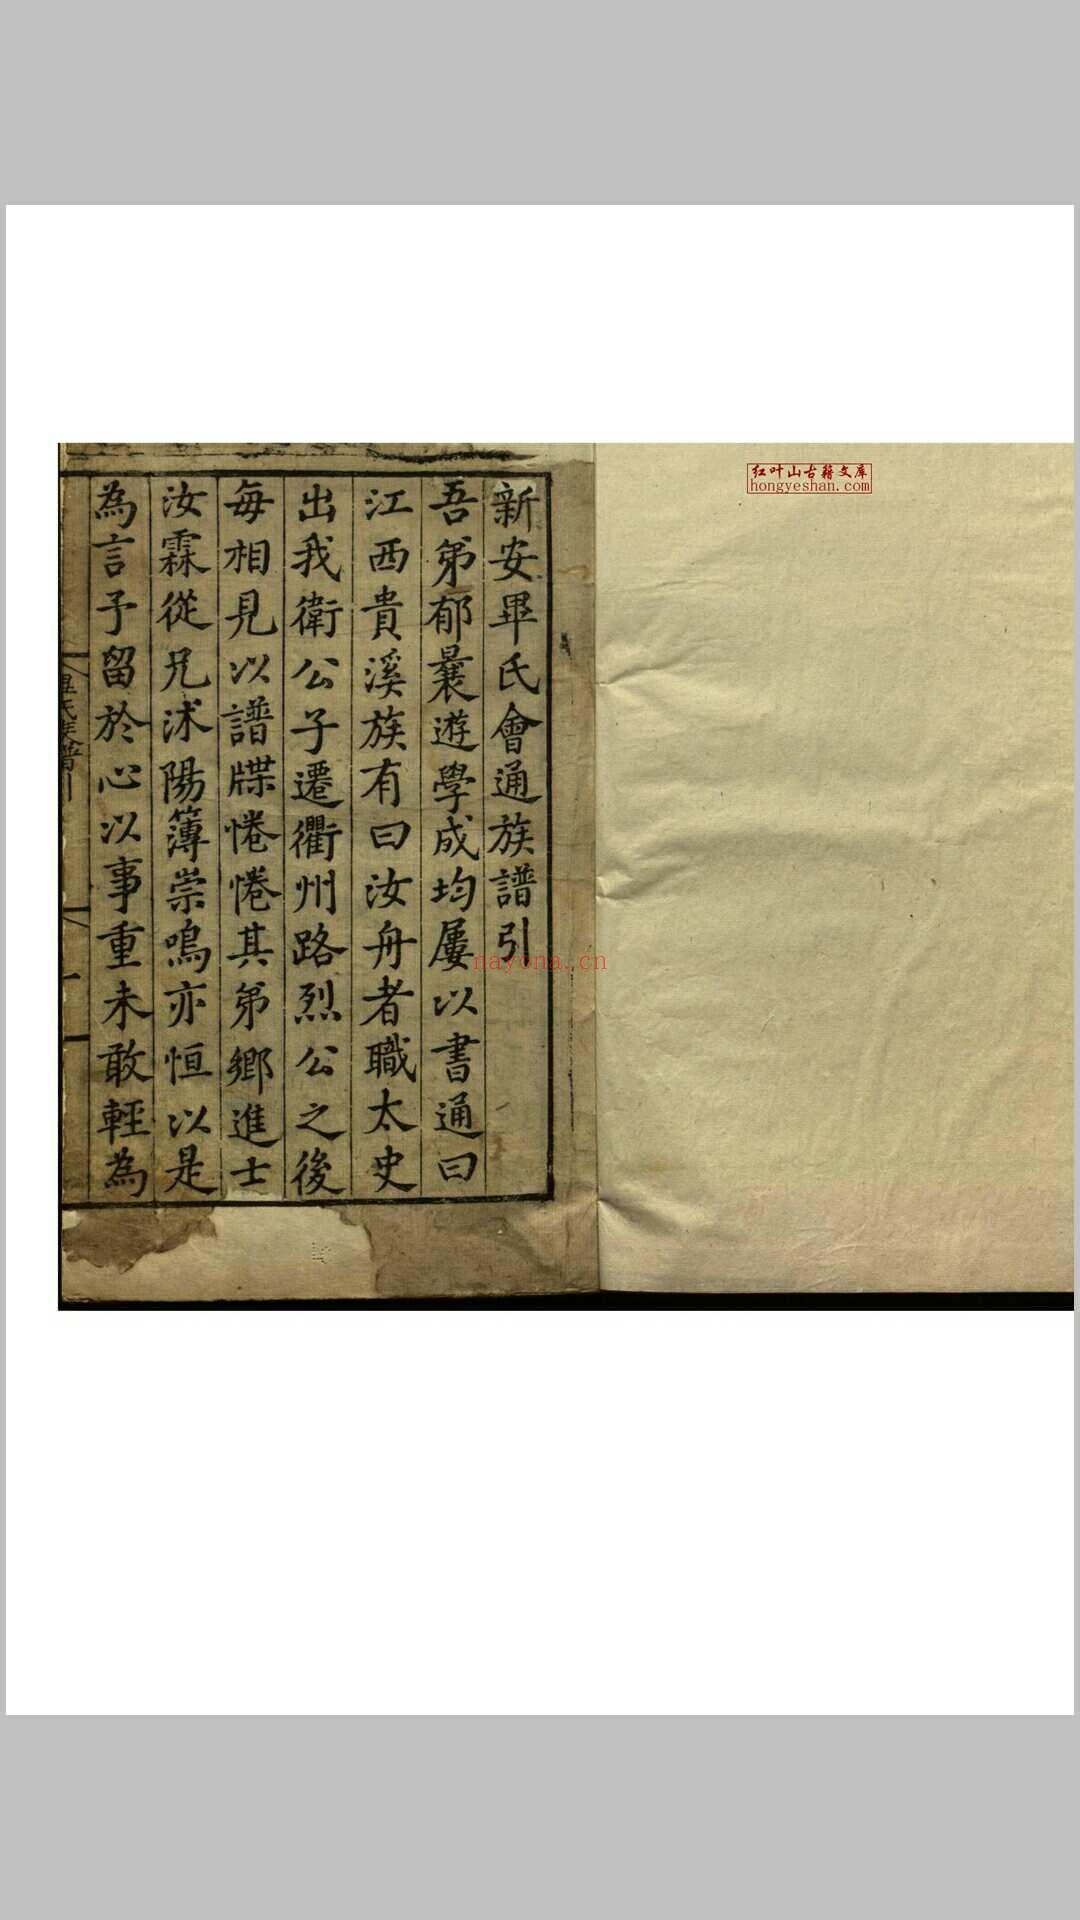 新安畢氏會通族譜引
吾弟郁曩遊學成均屢以書通曰
江西貴溪族有曰汝舟者職太史
出我衛公子遷衢州路烈公之後
每相見以譜牒惓惓其弟鄉進士
汝霖從兄沭陽簿崇鳴亦恒以是
為言予留於心以事重未敢輕為
畢氏族譜引
红叶山古籍文库
hongyeshan.com
nayona.cn